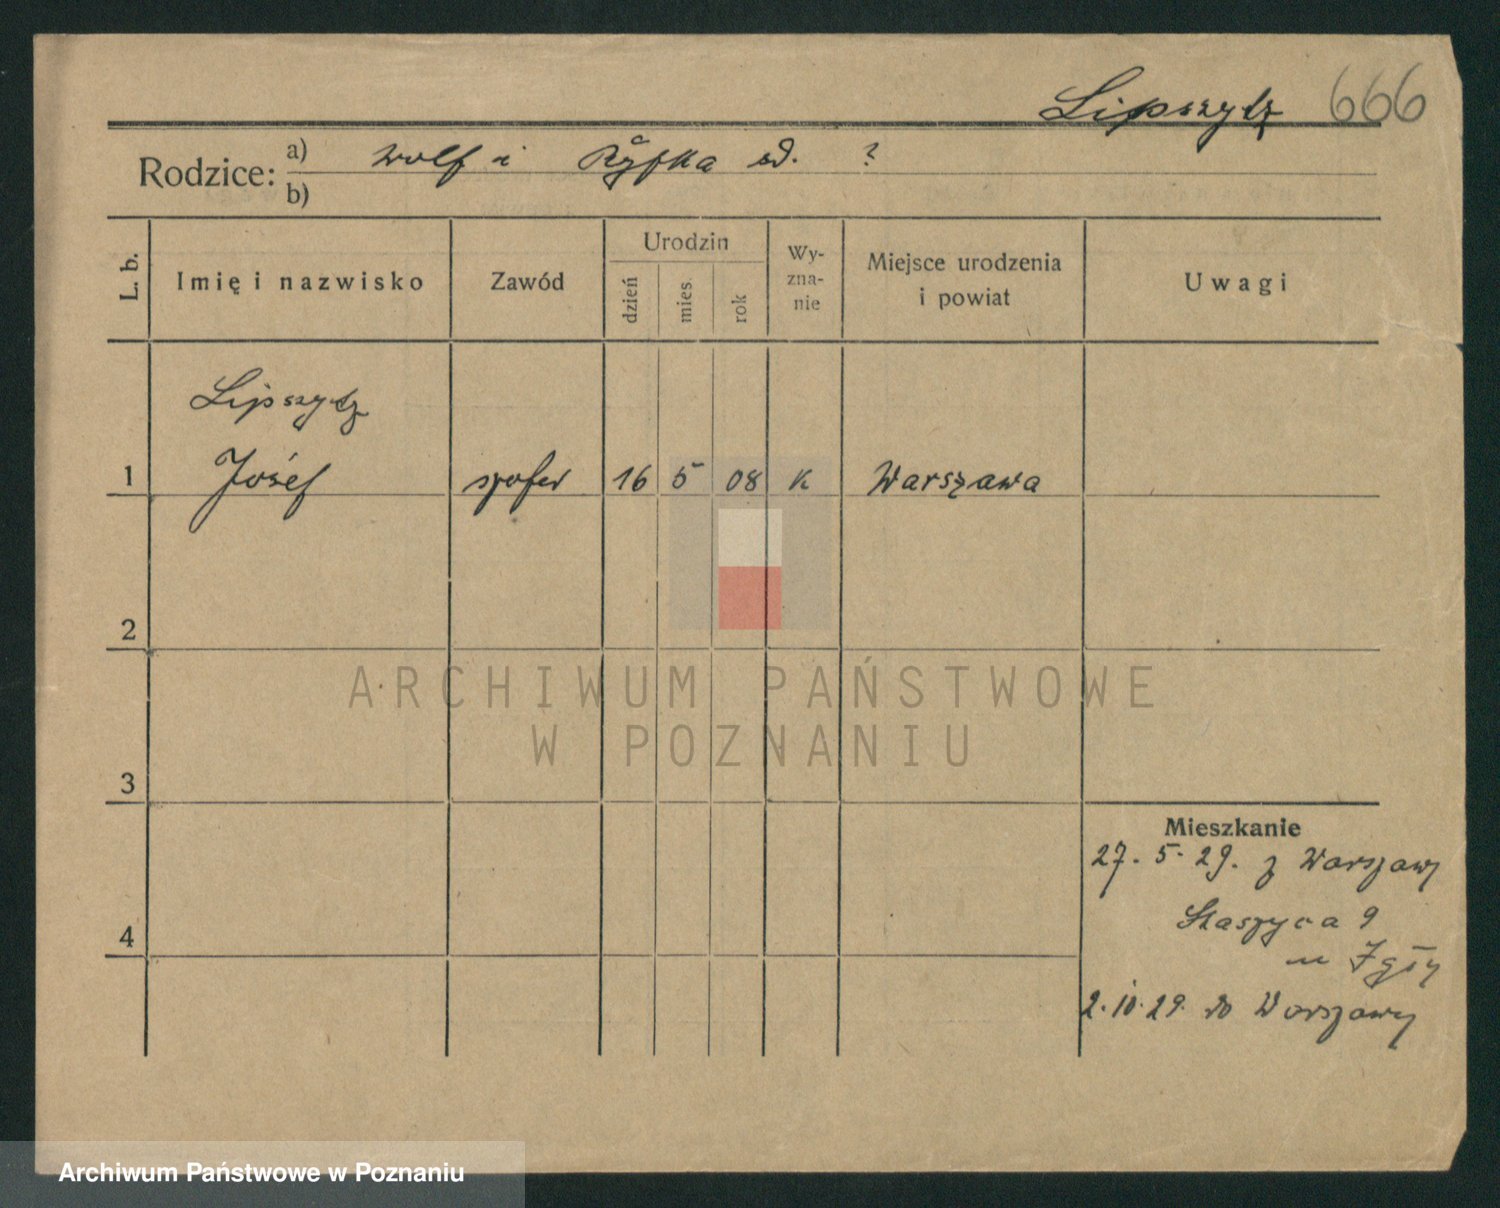 Lipszytz 666
Rodzice: a) Wolf i Ryfka sd. ?
b)
L. b.
Imię i nazwisko
Zawód
Urodzin
dzień
mies.
rok
Wy-
zna-
nie
Miejsce urodzenia
i powiat
Uwagi
Lipszytz
1 Josef szofer 16 5 08 K Warszawa
2
3
4
Mieszkanie
27. 5. 29. z Warszawy
Staszyca 9
u
2. 10. 29. do Warszawy
ARCHIWUM PAŃSTWOWE
W POZNANIU
Archiwum Państwowe w Poznaniu